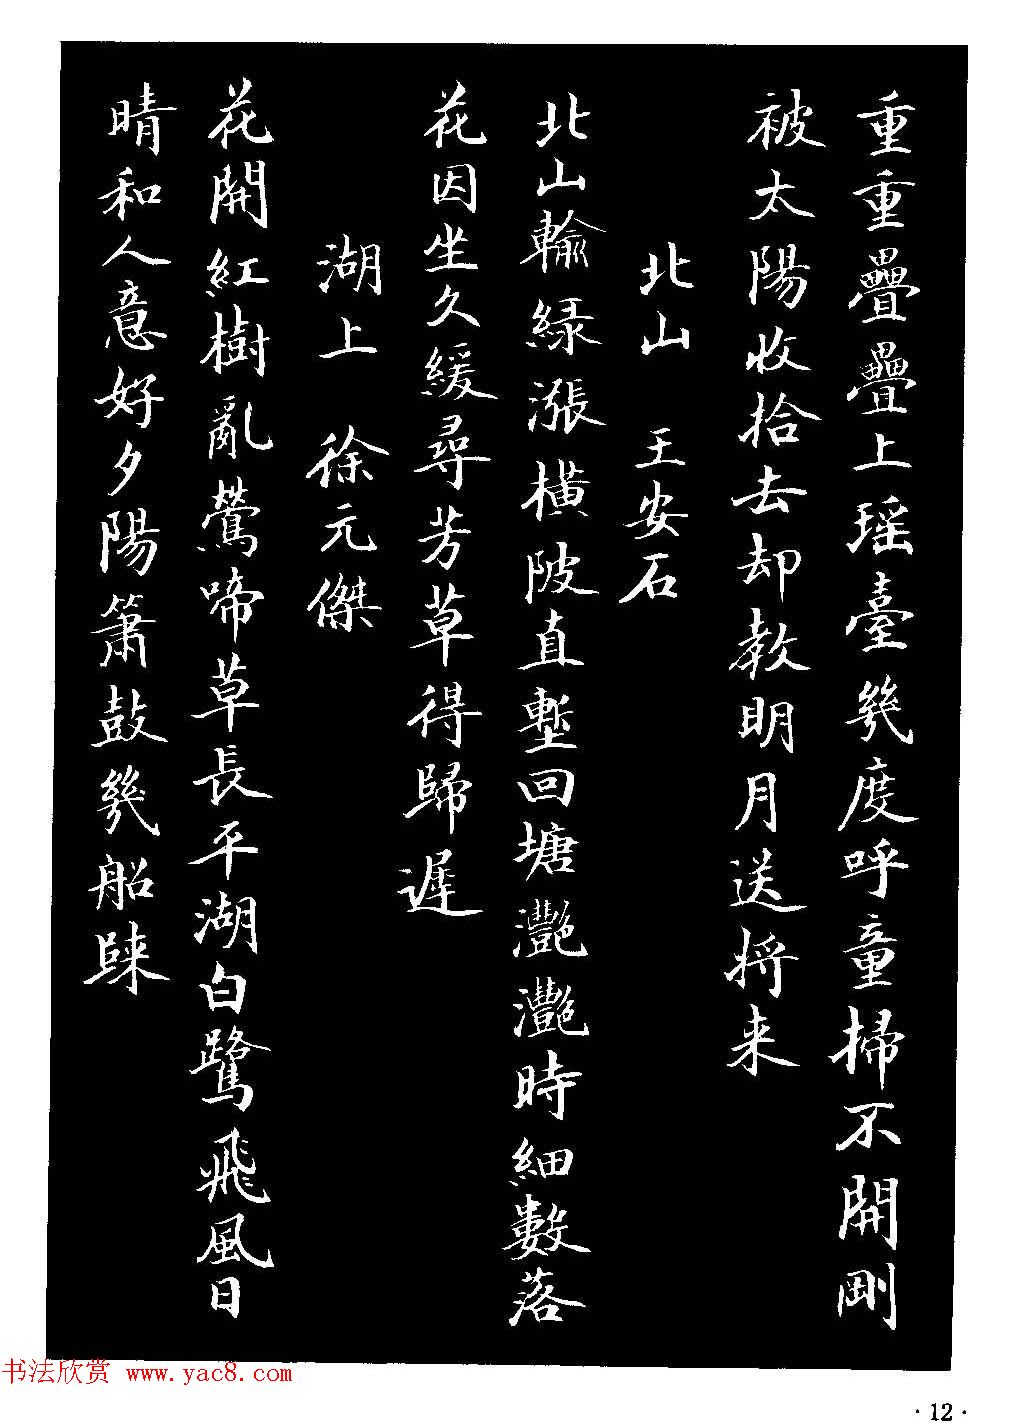 重重疊疊上瑶臺幾度呼童掃不開剛
被太陽收拾去却教明月送將来
北山 王安石
北山輸緑漲橫陂直塹回塘灧灧時細數落
花因坐久緩尋芳草得歸遲
湖上 徐元傑
花開紅樹亂鶯啼草長平湖白鷺飛風日
晴和人意好夕陽簫鼓幾船歸
书法欣赏 www.yac8.com
·12·